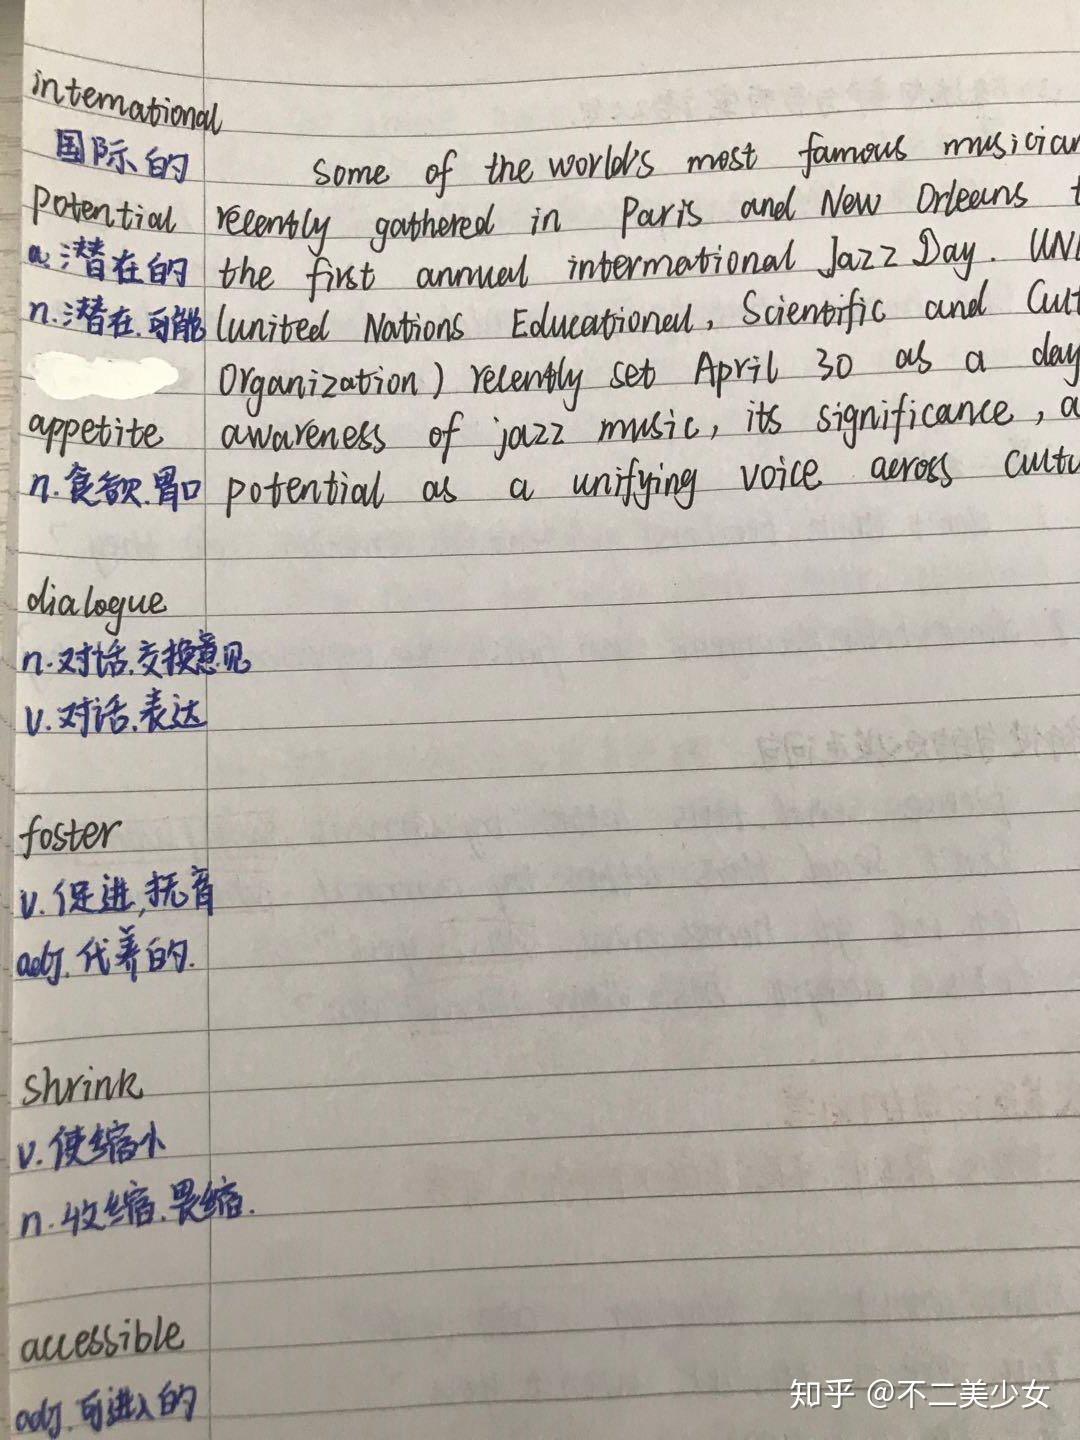 international
国际的
some of the world's most famous musician
potential
recently gathered in Paris and New Orleans t
a. 潜在的
the first annual intermational Jazz Day. UN
n. 潜在.可能
(united Nations Educational, Scientific and Cult
Organization) recently set April 30 as a day
appetite
awareness of jazz music, its significance, a
n. 食欲.胃口
potential as a unifying voice across cultu
dialogue
n. 对话.交换意见
v. 对话.表达
foster
v. 促进,抚育
adj. 代养的.
shrink
v. 使缩小
n. 收缩.畏缩.
accessible
adj. 可进入的
知乎 @不二美少女